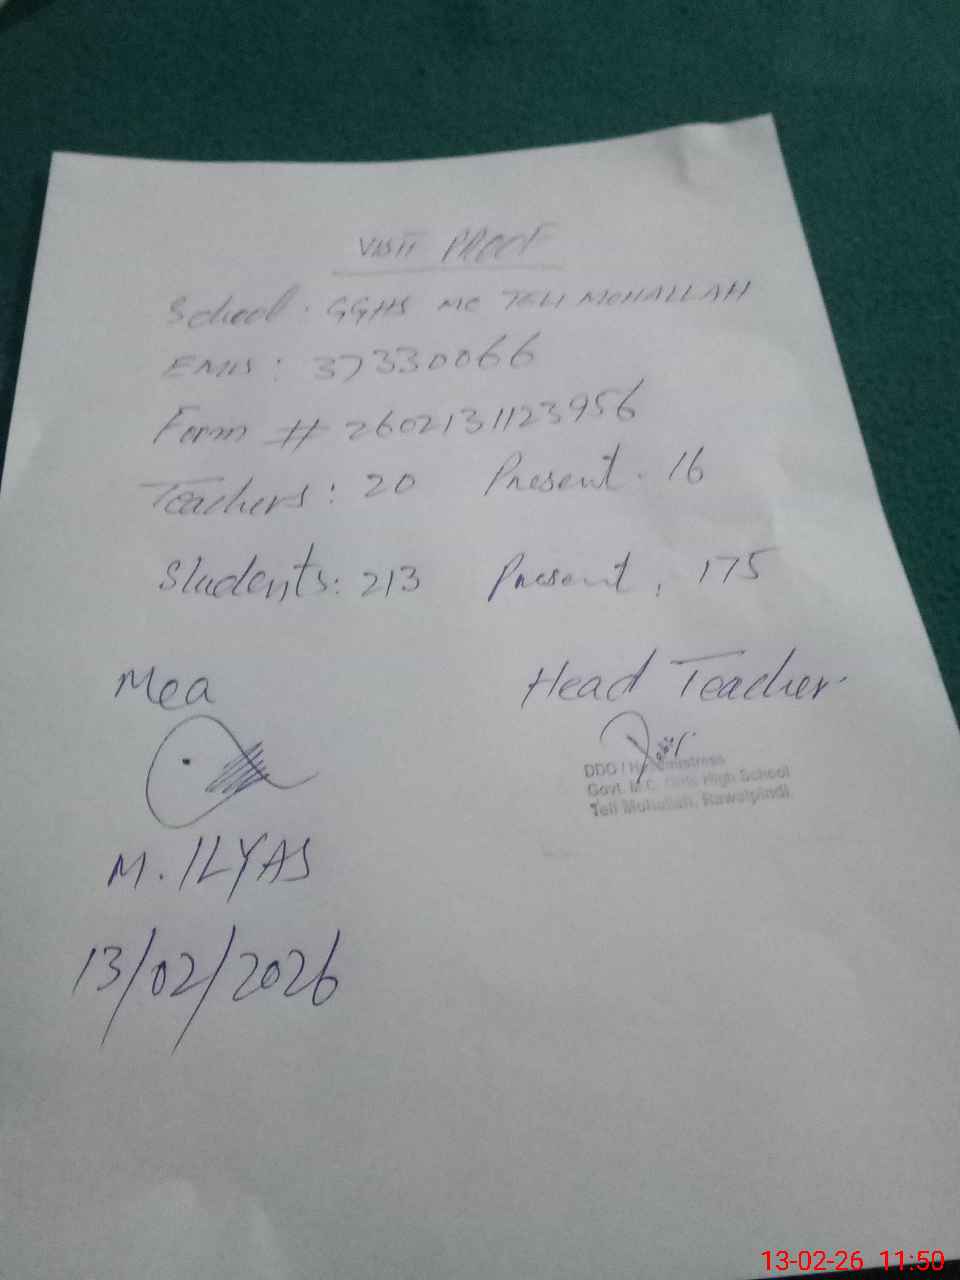 VISIT PROOF
School: GGHS MC TELI MOHALLAH
EMIS: 37330066
Form # 2602131123956
Teachers: 20 Present. 16
Students: 213 Present. 175
Mea
Head Teacher
DDO / Headmistress
Govt. M.C. Girls High School
Teli Mohallah, Rawalpindi
M. ILYAS
13/02/2026
13-02-26 11:50